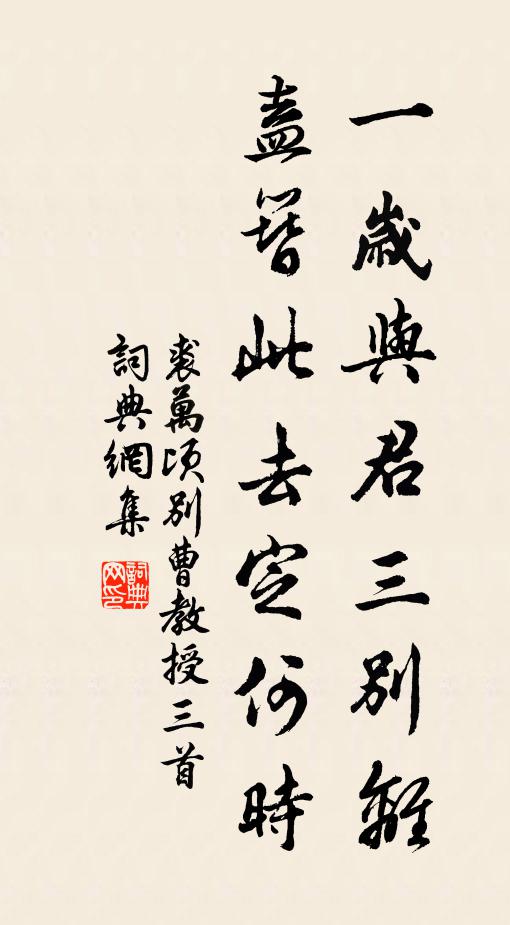 一歲與君三別離
盍簪此去定何時
裘萬頃別曹教授三首
詞典網集
詞典网印